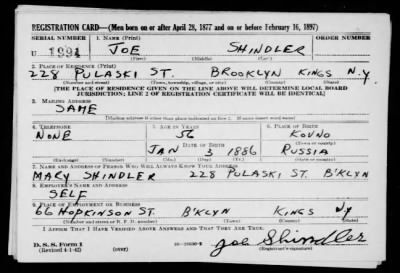 REGISTRATION CARD—(Men born on or after April 28, 1877 and on or before February 16, 1897)
SERIAL NUMBER 1. NAME (Print) ORDER NUMBER
U 1891 JOE SHINDLER
(First) (Middle) (Last)
2. PLACE OF RESIDENCE (Print)
228 PULASKI ST. BROOKLYN KINGS N.Y
(Number and street) (Town, township, village, or city) (County) (State)
[THE PLACE OF RESIDENCE GIVEN ON THE LINE ABOVE WILL DETERMINE LOCAL BOARD
JURISDICTION; LINE 2 OF REGISTRATION CERTIFICATE WILL BE IDENTICAL]
3. MAILING ADDRESS
SAME
[Mailing address if other than place indicated on line 2. If same insert word same]
4. TELEPHONE 5. AGE IN YEARS 6. PLACE OF BIRTH
NONE 56 KOVNO
DATE OF BIRTH (Town or county)
JAN 3 1886 RUSSIA
(Exchange) (Number) (Mo.) (Day) (Yr.) (State or country)
7. NAME AND ADDRESS OF PERSON WHO WILL ALWAYS KNOW YOUR ADDRESS
MARY SHINDLER 228 PULASKI ST. B'KLYN
8. EMPLOYER'S NAME AND ADDRESS
SELF
9. PLACE OF EMPLOYMENT OR BUSINESS
66 HOPKINSON ST. B'KLYN KINGS NY
(Number and street or R. F. D. number) (Town) (County) (State)
I AFFIRM THAT I HAVE VERIFIED ABOVE ANSWERS AND THAT THEY ARE TRUE.
D. S. S. Form 1
(Revised 4-1-42) (over) Joe Shindler
(Registrant's signature)